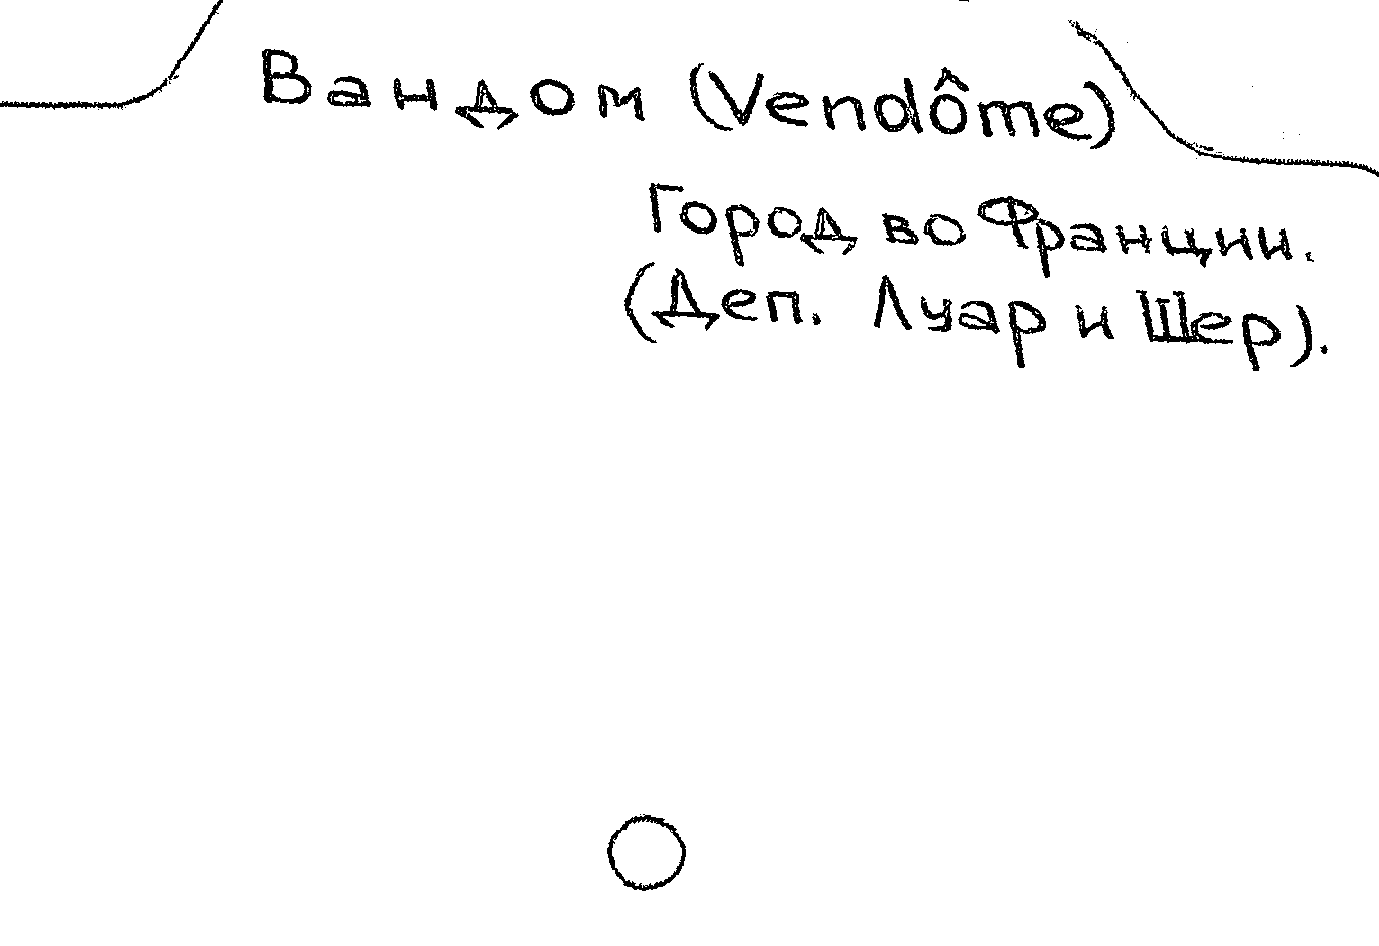 Вандом (Vendôme)
Город во Франции.
(Деп. Луар и Шер).